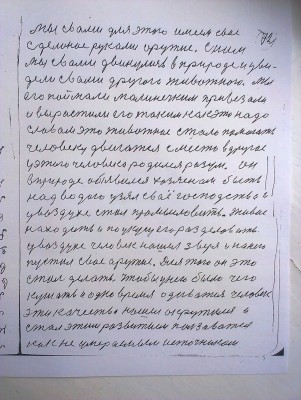 мы с вами для этого имеем свае
сделоное руками оружие. Сним
мы с вами двинулись в природе и уви-
дели с вами другого животного. Мы
его поймали маленьким привезали
и вырастили его таким как это надо
словам это животные стало помогать
человеку двигатся с места в другое
у этого человека родился разум. он
в природе обявился хозяеном быть
над водою узял сваё господство а
у воздухе стал промысловить. живое
находить и поулицу его разделовать
у воздухе человек нашол зверя и на него
пустил свае оружие. Для того он это
стал делать чтобы у него было чего
кушать а одно время одеватся человек
эти качество нашол окружился а
стал этим развитием пользоватся
как не умераемым источником